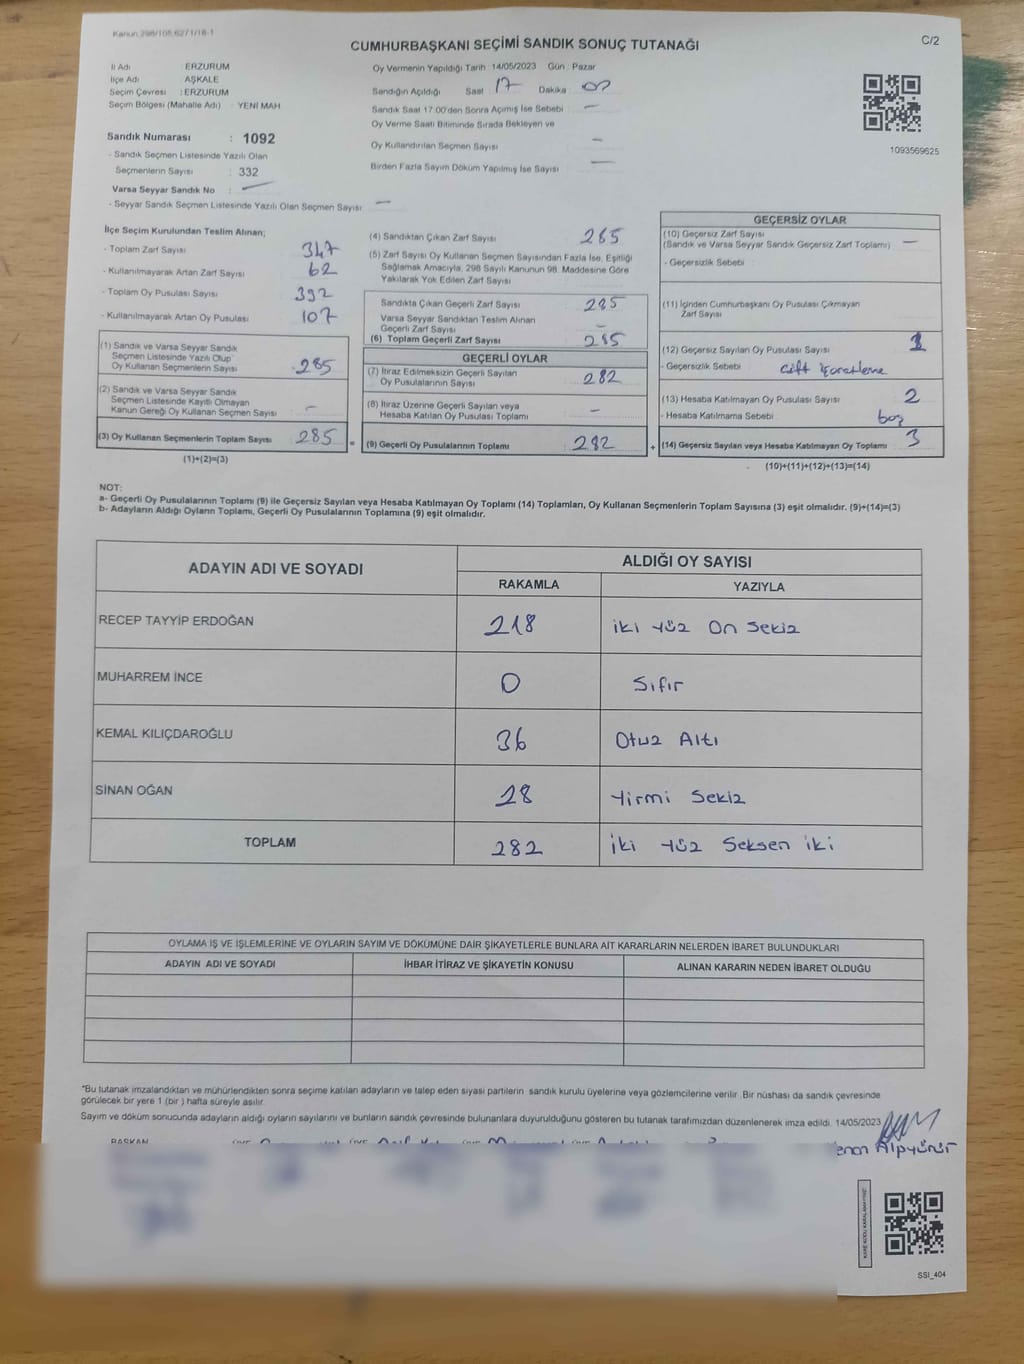 Kanun 298/105,6271/18-1
CUMHURBAŞKANI SEÇİMİ SANDIK SONUÇ TUTANAĞI
C/2
İl Adı ERZURUM
İlçe Adı AŞKALE
Seçim Çevresi : ERZURUM
Seçim Bölgesi (Mahalle Adı) : YENİ MAH
Oy Vermenin Yapıldığı Tarih : 14/05/2023 Gün : Pazar
Sandığın Açıldığı Saat : 17 Dakika : 00
Sandık Saat 17.00'den Sonra Açılmış İse Sebebi : —
Oy Verme Saati Bitiminde Sırada Bekleyen ve
Oy Kullandırılan Seçmen Sayısı —
Birden Fazla Sayım Döküm Yapılmış İse Sayısı —
1093569625
Sandık Numarası : 1092
- Sandık Seçmen Listesinde Yazılı Olan
Seçmenlerin Sayısı : 332
Varsa Seyyar Sandık No : —
- Seyyar Sandık Seçmen Listesinde Yazılı Olan Seçmen Sayısı —
İlçe Seçim Kurulundan Teslim Alınan;
- Toplam Zarf Sayısı 347
- Kullanılmayarak Artan Zarf Sayısı 62
- Toplam Oy Pusulası Sayısı 392
- Kullanılmayarak Artan Oy Pusulası 107
(1) Sandık ve Varsa Seyyar Sandık
Seçmen Listesinde Yazılı Olup
Oy Kullanan Seçmenlerin Sayısı 285
(2) Sandık ve Varsa Seyyar Sandık
Seçmen Listesinde Kayıtlı Olmayan
Kanun Gereği Oy Kullanan Seçmen Sayısı –
(3) Oy Kullanan Seçmenlerin Toplam Sayısı 285 =
(1)+(2)=(3)
(4) Sandıktan Çıkan Zarf Sayısı 285
(5) Zarf Sayısı Oy Kullanan Seçmen Sayısından Fazla İse, Eşitliği
Sağlamak Amacıyla, 298 Sayılı Kanunun 98. Maddesine Göre
Yakılarak Yok Edilen Zarf Sayısı
Sandıkta Çıkan Geçerli Zarf Sayısı 285
Varsa Seyyar Sandıktan Teslim Alınan
Geçerli Zarf Sayısı –
(6) Toplam Geçerli Zarf Sayısı 285
GEÇERLİ OYLAR
(7) İtiraz Edilmeksizin Geçerli Sayılan
Oy Pusulalarının Sayısı : 282
(8) İtiraz Üzerine Geçerli Sayılan veya
Hesaba Katılan Oy Pusulası Toplamı : –
(9) Geçerli Oy Pusulalarının Toplamı : 282 +
GEÇERSİZ OYLAR
(10) Geçersiz Zarf Sayısı
(Sandık ve Varsa Seyyar Sandık Geçersiz Zarf Toplamı) —
- Geçersizlik Sebebi :
(11) İçinden Cumhurbaşkanı Oy Pusulası Çıkmayan
Zarf Sayısı
(12) Geçersiz Sayılan Oy Pusulası Sayısı 1
- Geçersizlik Sebebi : çift işaretleme
(13) Hesaba Katılmayan Oy Pusulası Sayısı 2
- Hesaba Katılmama Sebebi : boş
(14) Geçersiz Sayılan veya Hesaba Katılmayan Oy Toplamı 3
(10)+(11)+(12)+(13)=(14)
NOT:
a- Geçerli Oy Pusulalarının Toplamı (9) ile Geçersiz Sayılan veya Hesaba Katılmayan Oy Toplamı (14) Toplamları, Oy Kullanan Seçmenlerin Toplam Sayısına (3) eşit olmalıdır. (9)+(14)=(3)
b- Adayların Aldığı Oyların Toplamı, Geçerli Oy Pusulalarının Toplamına (9) eşit olmalıdır.
ADAYIN ADI VE SOYADI
ALDIĞI OY SAYISI
RAKAMLA YAZIYLA
RECEP TAYYİP ERDOĞAN 218 iki yüz On Sekiz
MUHARREM İNCE 0 Sıfır
KEMAL KILIÇDAROĞLU 36 Otuz Altı
SİNAN OĞAN 28 Yirmi Sekiz
TOPLAM 282 iki yüz Seksen iki
OYLAMA İŞ VE İŞLEMLERİNE VE OYLARIN SAYIM VE DÖKÜMÜNE DAİR ŞİKAYETLERLE BUNLARA AİT KARARLARIN NELERDEN İBARET BULUNDUKLARI
ADAYIN ADI VE SOYADI İHBAR İTİRAZ VE ŞİKAYETİN KONUSU ALINAN KARARIN NEDEN İBARET OLDUĞU
*Bu tutanak imzalandıktan ve mühürlendikten sonra seçime katılan adayların ve talep eden siyasi partilerin sandık kurulu üyelerine veya gözlemcilerine verilir. Bir nüshası da sandık çevresinde
görülecek bir yere 1 (bir) hafta süreyle asılır.
Sayım ve döküm sonucunda adayların aldığı oyların sayılarını ve bunların sandık çevresinde bulunanlara duyurulduğunu gösteren bu tutanak tarafımızdan düzenlenerek imza edildi. 14/05/2023
BAŞKAN
SSI_404